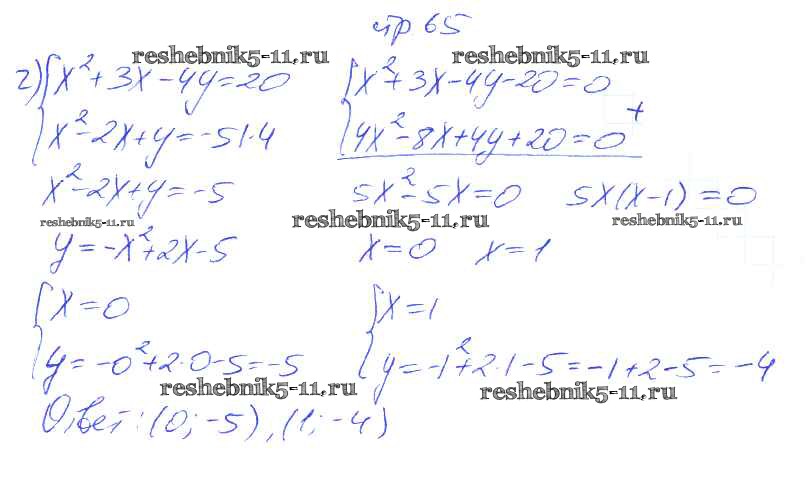 стр 65
reshebnik5-11.ru reshebnik5-11.ru
2) { x² + 3x - 4y = 20 { x² + 3x - 4y - 20 = 0
{ x² - 2x + y = -5 | · 4 { 4x² - 8x + 4y + 20 = 0 +
x² - 2x + y = -5 5x² - 5x = 0 5x(x - 1) = 0
reshebnik5-11.ru reshebnik5-11.ru reshebnik5-11.ru
y = -x² + 2x - 5 x = 0 x = 1
{ x = 0 { x = 1
{ y = -0² + 2·0 - 5 = -5 { y = -1² + 2·1 - 5 = -1 + 2 - 5 = -4
reshebnik5-11.ru reshebnik5-11.ru
Ответ: (0; -5), (1; -4)